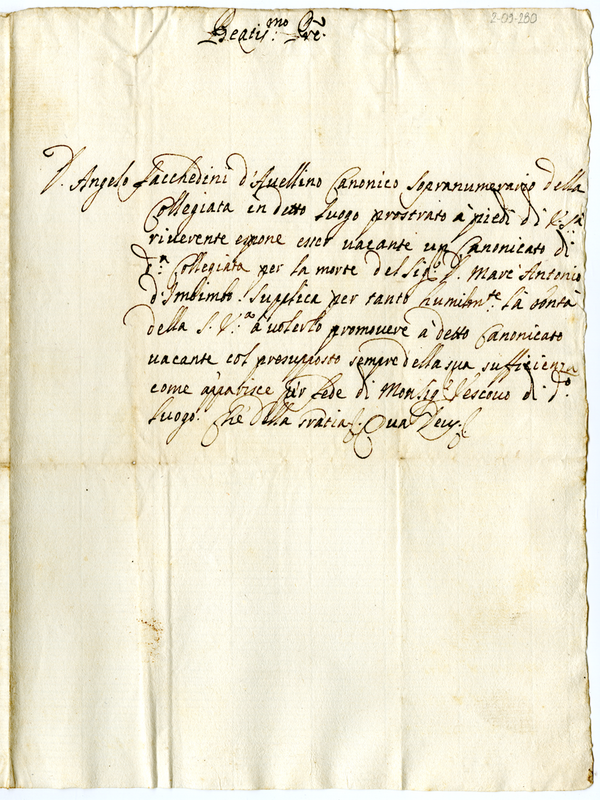 2-09-280
Beatis.mo Pre.
D. Angelo Iacchedini d'Avellino Canonico sopranumerario della
Collegiata in detto luogo prostrato à piedi di V. S.tà
riverente espone esser vacante un Canonicato di
d.a Collegiata per la morte del Sig.r D. Marc' Antonio
d'Imbimbo. Supplica per tanto humilm.te la bontà
della S. V.a à volerlo promovere à detto Canonicato
vacante col presupposto sempre della sua sufficienza
come apparisce per fede di Monsig.r Vescovo di d.o
luogo. Che della gratia. Qua Deus.